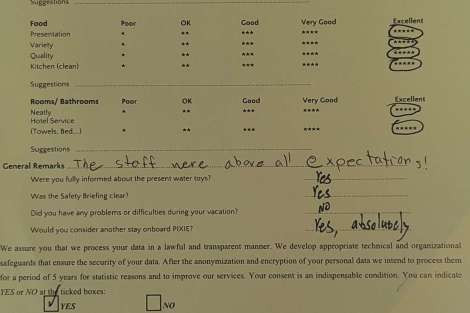 Suggestions
Food Poor OK Good Very Good Excellent
Presentation * ** *** **** *****
Variety * ** *** **** *****
Quality * ** *** **** *****
Kitchen (clean) * ** *** **** *****
Suggestions
Rooms/ Bathrooms Poor OK Good Very Good Excellent
Neatly * ** *** **** *****
Hotel Service
(Towels, Bed...) * ** *** **** *****
Suggestions
General Remarks The staff were above all expectations!
Were you fully informed about the present water toys? Yes
Was the Safety Briefing clear? Yes
Did you have any problems or difficulties during your vacation? NO
Would you consider another stay onboard PIXIE? Yes, absolutely
We assure you that we process your data in a lawful and transparent manner. We develop appropriate technical and organizational
safeguards that ensure the security of your data. After the anonymization and encryption of your personal data we intend to process them
for a period of 5 years for statistic reasons and to improve our services. Your consent is an indispensable condition. You can indicate
YES or NO at the ticked boxes:
YES NO